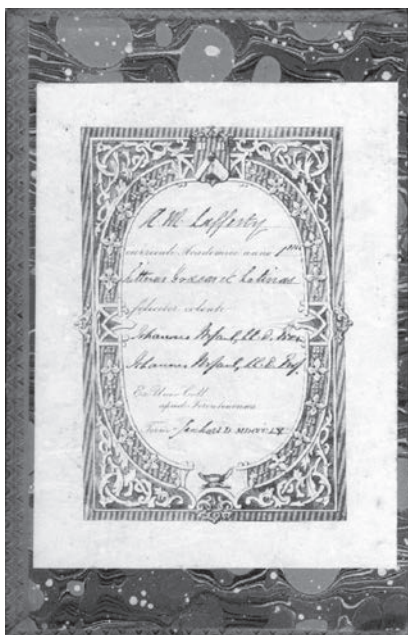 A M Lafferty
Academico anno
Litteras Graecas et Latinas
feliciter colente
Johannes McCaul, LL.D.
Johannes McCaul, LL.D. Prof.
Ex Univ. Coll.
apud Torontonenses
MDCCCLX